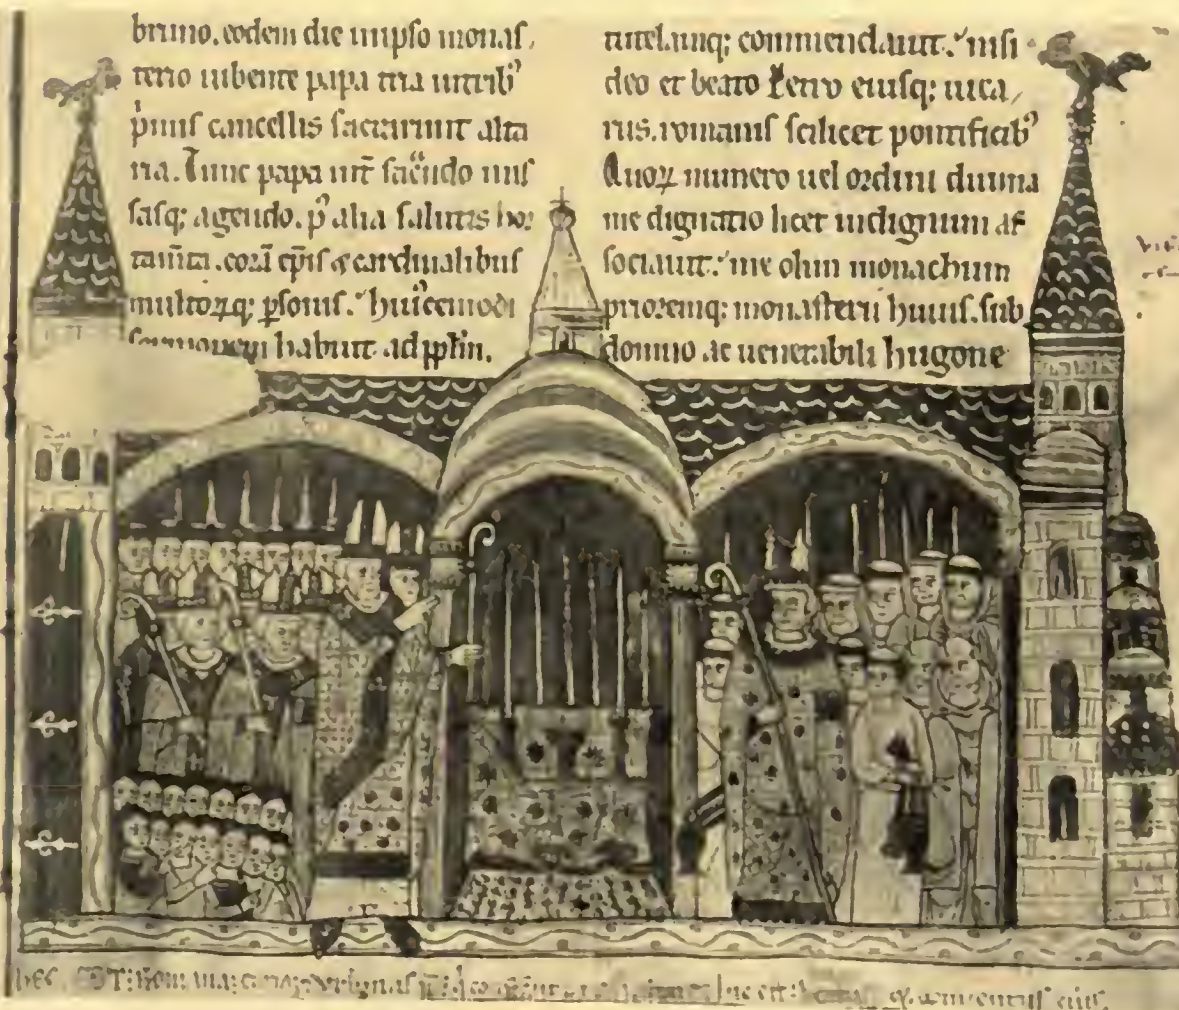 bruno. eodem die in ipso monas,
terio iubente papa tria in trib⁹
p̄mis cancellis sacrarunt alta
ria. Tunc papa int̄ sac̄ndo mis
sasq; agendo. p⁹ alia salutis hor
tam̄ta. corā ep̄is & cardinalibus
multorꝝq; ꝑsonis. huiꝰcemodi
sermonem habuit ad pp̄lm.
tutelamq; commendauit. nisi
deo et beato Petro eiusq; uica,
riis. romanis scilicet pontificib⁹
Quoꝝ numero uel ordini diuina
me dignatio licet indignum as
sociauit. me olim monachum
prioremq; monasterii huius. sub
domno ac uenerabili hugone
conuentus eius.